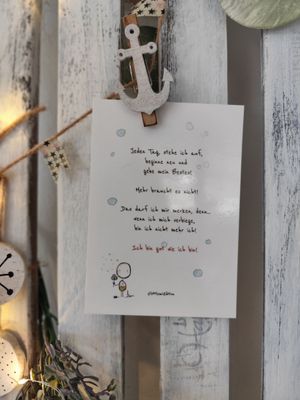 Jeden Tag, stehe ich auf,
beginne neu und
gebe mein Bestes!
Mehr braucht es nicht!
Das darf ich mir merken, denn...
wenn ich mich verbiege,
bin ich nicht mehr ich!
Ich bin gut wie ich bin!